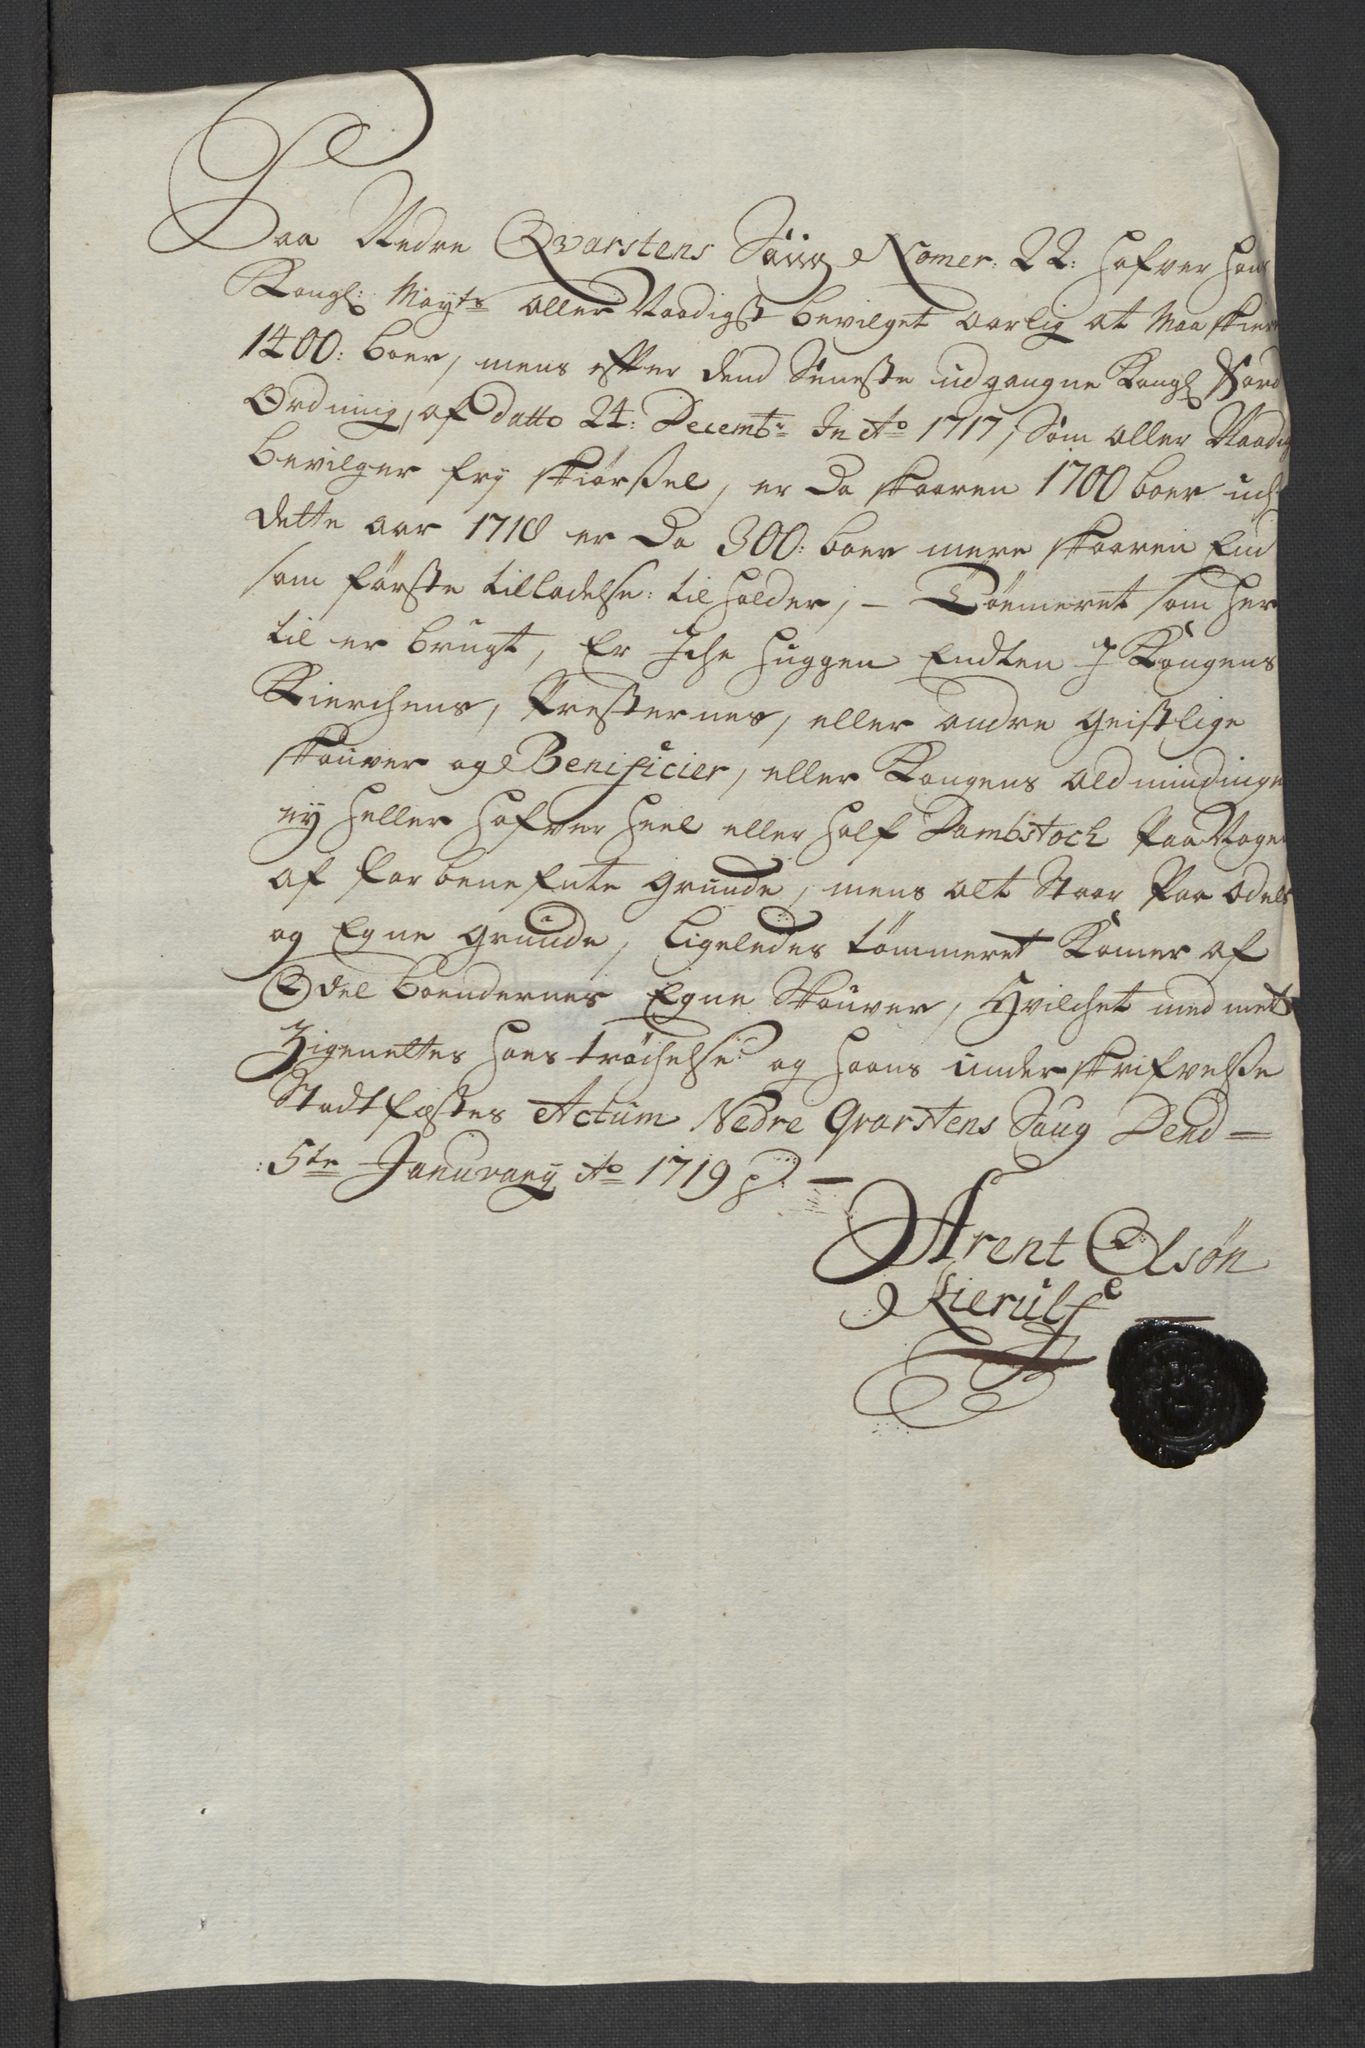 Paa Nedre Qvarstens Saug Nomer: 22: hafver hans
Kongl: Mayts aller Naadigst bevilget aarlig at Maa skier
1400: boer, mens efter dend Seneste udgangne Kongl Ford
Ordning, af datto 24: Decembr In Ao 1717, Som aller Naadig
bevilger fry skiørsel, er da skaaren 1700 boer udj
dette aar 1718 er da 300: boer mere skaaren End
som første tilladelse: tilholder, – Tømeret som her
til er brugt, Er Iche huggen Endten J Kongens
Kierchens, Presternes, eller andre geistlige
skouver og Benificier, eller Kongens aldmindinge
ey heller hafver heel eller half Dambstoch Paa Nogen
af forbenefnte grunde, mens alt Staar Paa odels
og Egne grunde, ligeledes tømmeret Komer af
Odel bøndernes Egne Skouver, Hvilchet med met
Zigenettes hoes tröchelse og haans underskrifvelse
Stadfæstes Actum Nedre Qvarstens Saug Dend –
5te Januvary Ao 1719 –
Arent Olsøn
Kierulf